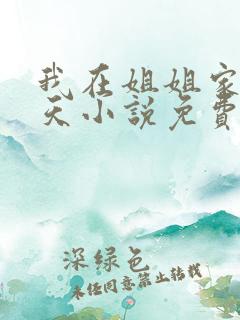 我在姐姐家
天小说免费
深绿色
未经同意禁止转载